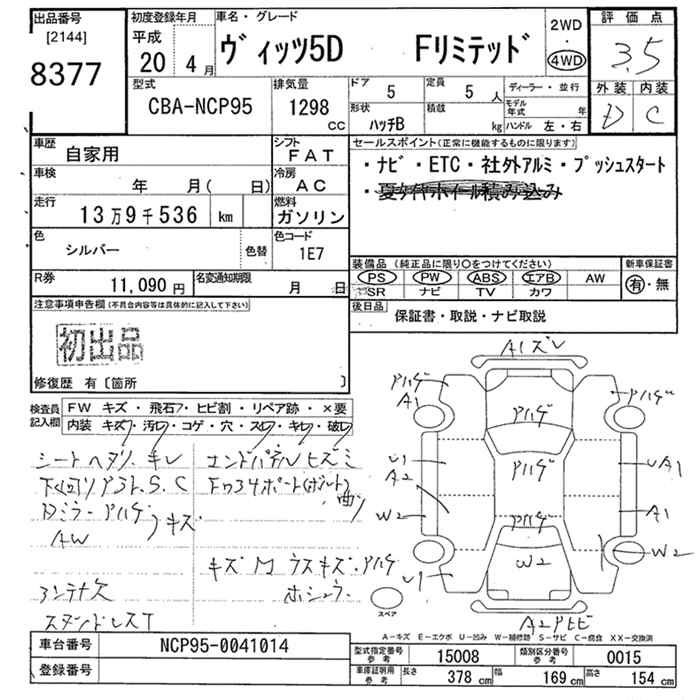 出品番号
[2144]
8377
初度登録年月
平成
20 4月
車名・グレード
ヴィッツ5D Fリミテッド
2WD
・
4WD
評価点
3.5
外装 内装
D C
型式
CBA-NCP95
排気量
1298
CC
ドア
5
定員
5人
形状
ハッチB
積載
kg
ディーラー・並行
モデル年式 年
ハンドル 左・右
車歴
自家用
シフト
FAT
車検
年 月( 日)
冷房
AC
走行
13万9千536 km
燃料
ガソリン
色
シルバー
色替
色コード
1E7
R券
11,090円
名変通知期限
月 日
セールスポイント(正常に機能するものに限ります)
・ナビ・ETC・社外アルミ・プッシュスタート
・夏タイヤホイール積み込み
装備品(純正品に限り○をつけてください)
PS PW ABS エアB AW
SR ナビ TV カワ
新車保証書
有・無
後日品
保証書・取説・ナビ取説
注意事項申告欄(不具合内容等は具体的に記入して下さい)
初出品
修復歴 有〔箇所 〕
検査員記入欄
FW キズ・飛石・ヒビ割・リペア跡・×要
内装 キズ・汚レ・コゲ・穴・スレ・キレ・破レ
シートヘタリ、キレ
下回りサビ、S.C
Dミラーアハゲ
AW
キズ
アンテナ欠
スタンドレスT
エンドパネルヒズミ
曲り
キズM ラスキズ、アハゲ
ホシュウ
A1ズレ
アハゲ
A1
アハゲ
アハゲ
アハゲ
U1
A2
UA1
W2
A1
アハゲ
W2
W2
U1
スペア
A2アヒビ
A-キズ E-エクボ U-凹み W-補修跡 S-サビ C-腐食 XX-交換済
車台番号
NCP95-0041014
登録番号
型式指定番号
参考
15008
類別区分番号
参考
0015
車庫証明用
参考
長さ 378 cm
幅 169 cm
高さ 154 cm